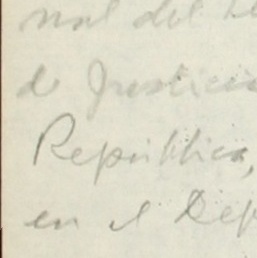 nal del
de Justicia
República,
en el Dep